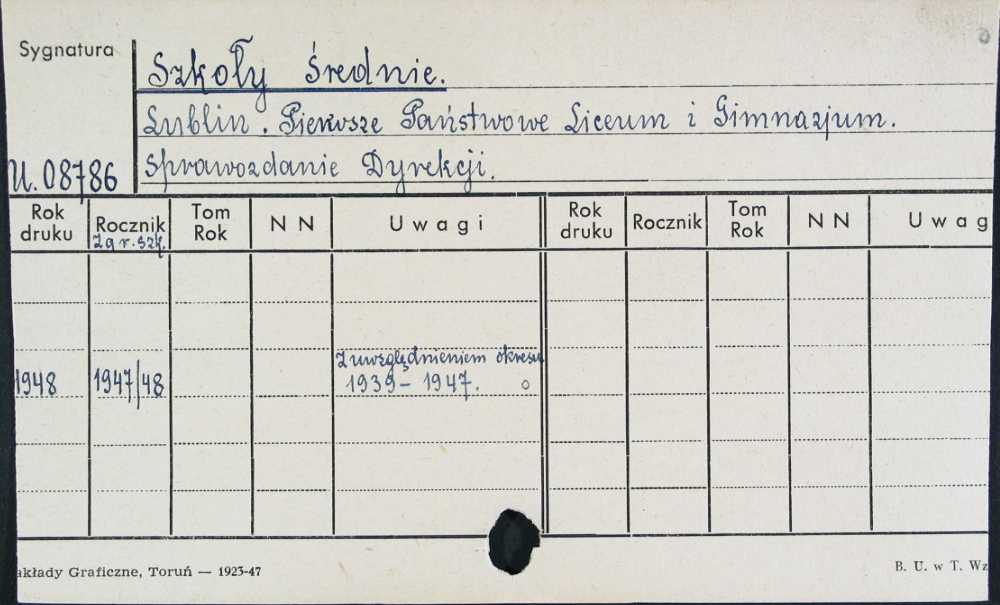 Sygnatura
Szkoły Średnie.
Lublin. Pierwsze Państwowe Liceum i Gimnazjum.
U. 08786
Sprawozdanie Dyrekcji.
Rok druku Rocznik zgr. szk. Tom Rok N N Uwagi Rok druku Rocznik Tom Rok N N Uwag
z uwzględnieniem okresu
1948 1947/48 1939 – 1947.
akłady Graficzne, Toruń — 1923-47 B. U. w T. Wz